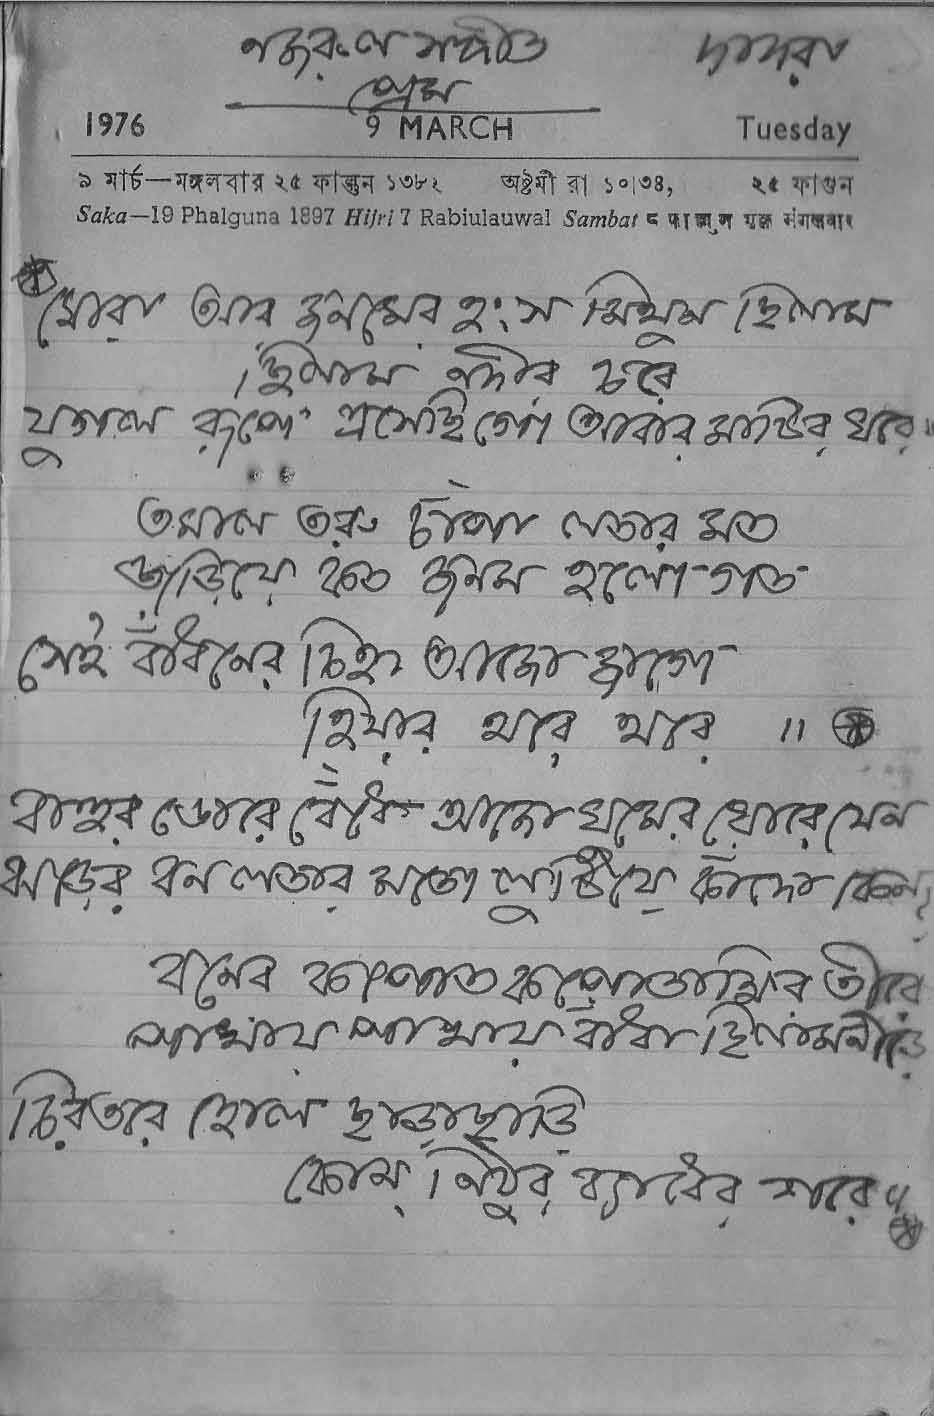 নজরুল সঙ্গীত দাদরা
প্রেম
1976 9 MARCH Tuesday
৯ মার্চ—মঙ্গলবার ২৫ ফাল্গুন ১৩৮২ অষ্টমী রা ১০।৩৪, ২৫ ফাগুন
Saka—19 Phalguna 1897 Hijri 7 Rabiulauwal Sambat ८ फाल्गुन शुक्ल मंगलवार
মোরা আর জনমের হংস মিথুন ছিলাম
ছিলাম নদীর চরে
যুগল রূপে এসেছি গো আবার মাটির ঘরে ॥
তমাল তরু চাঁপা লতার মত
জড়িয়ে কত জনম হলো গত
সেই বাঁধনের চিহ্ন আজো জাগে
হিয়ার থরে থরে ॥
বাহুর ডোরে বেঁধে আজো ঘুমের ঘোরে যেন
ঝড়ের বন লতার মতো লুটিয়ে কাঁদো কেন
বনের কপোত কপোতাক্ষির তীরে
পাখায় পাখায় বাঁধা ছিলাম নীড়ে
চিরতরে হোল ছাড়াছাড়ি
কোন্ নিঠুর ব্যাধের শরে ॥